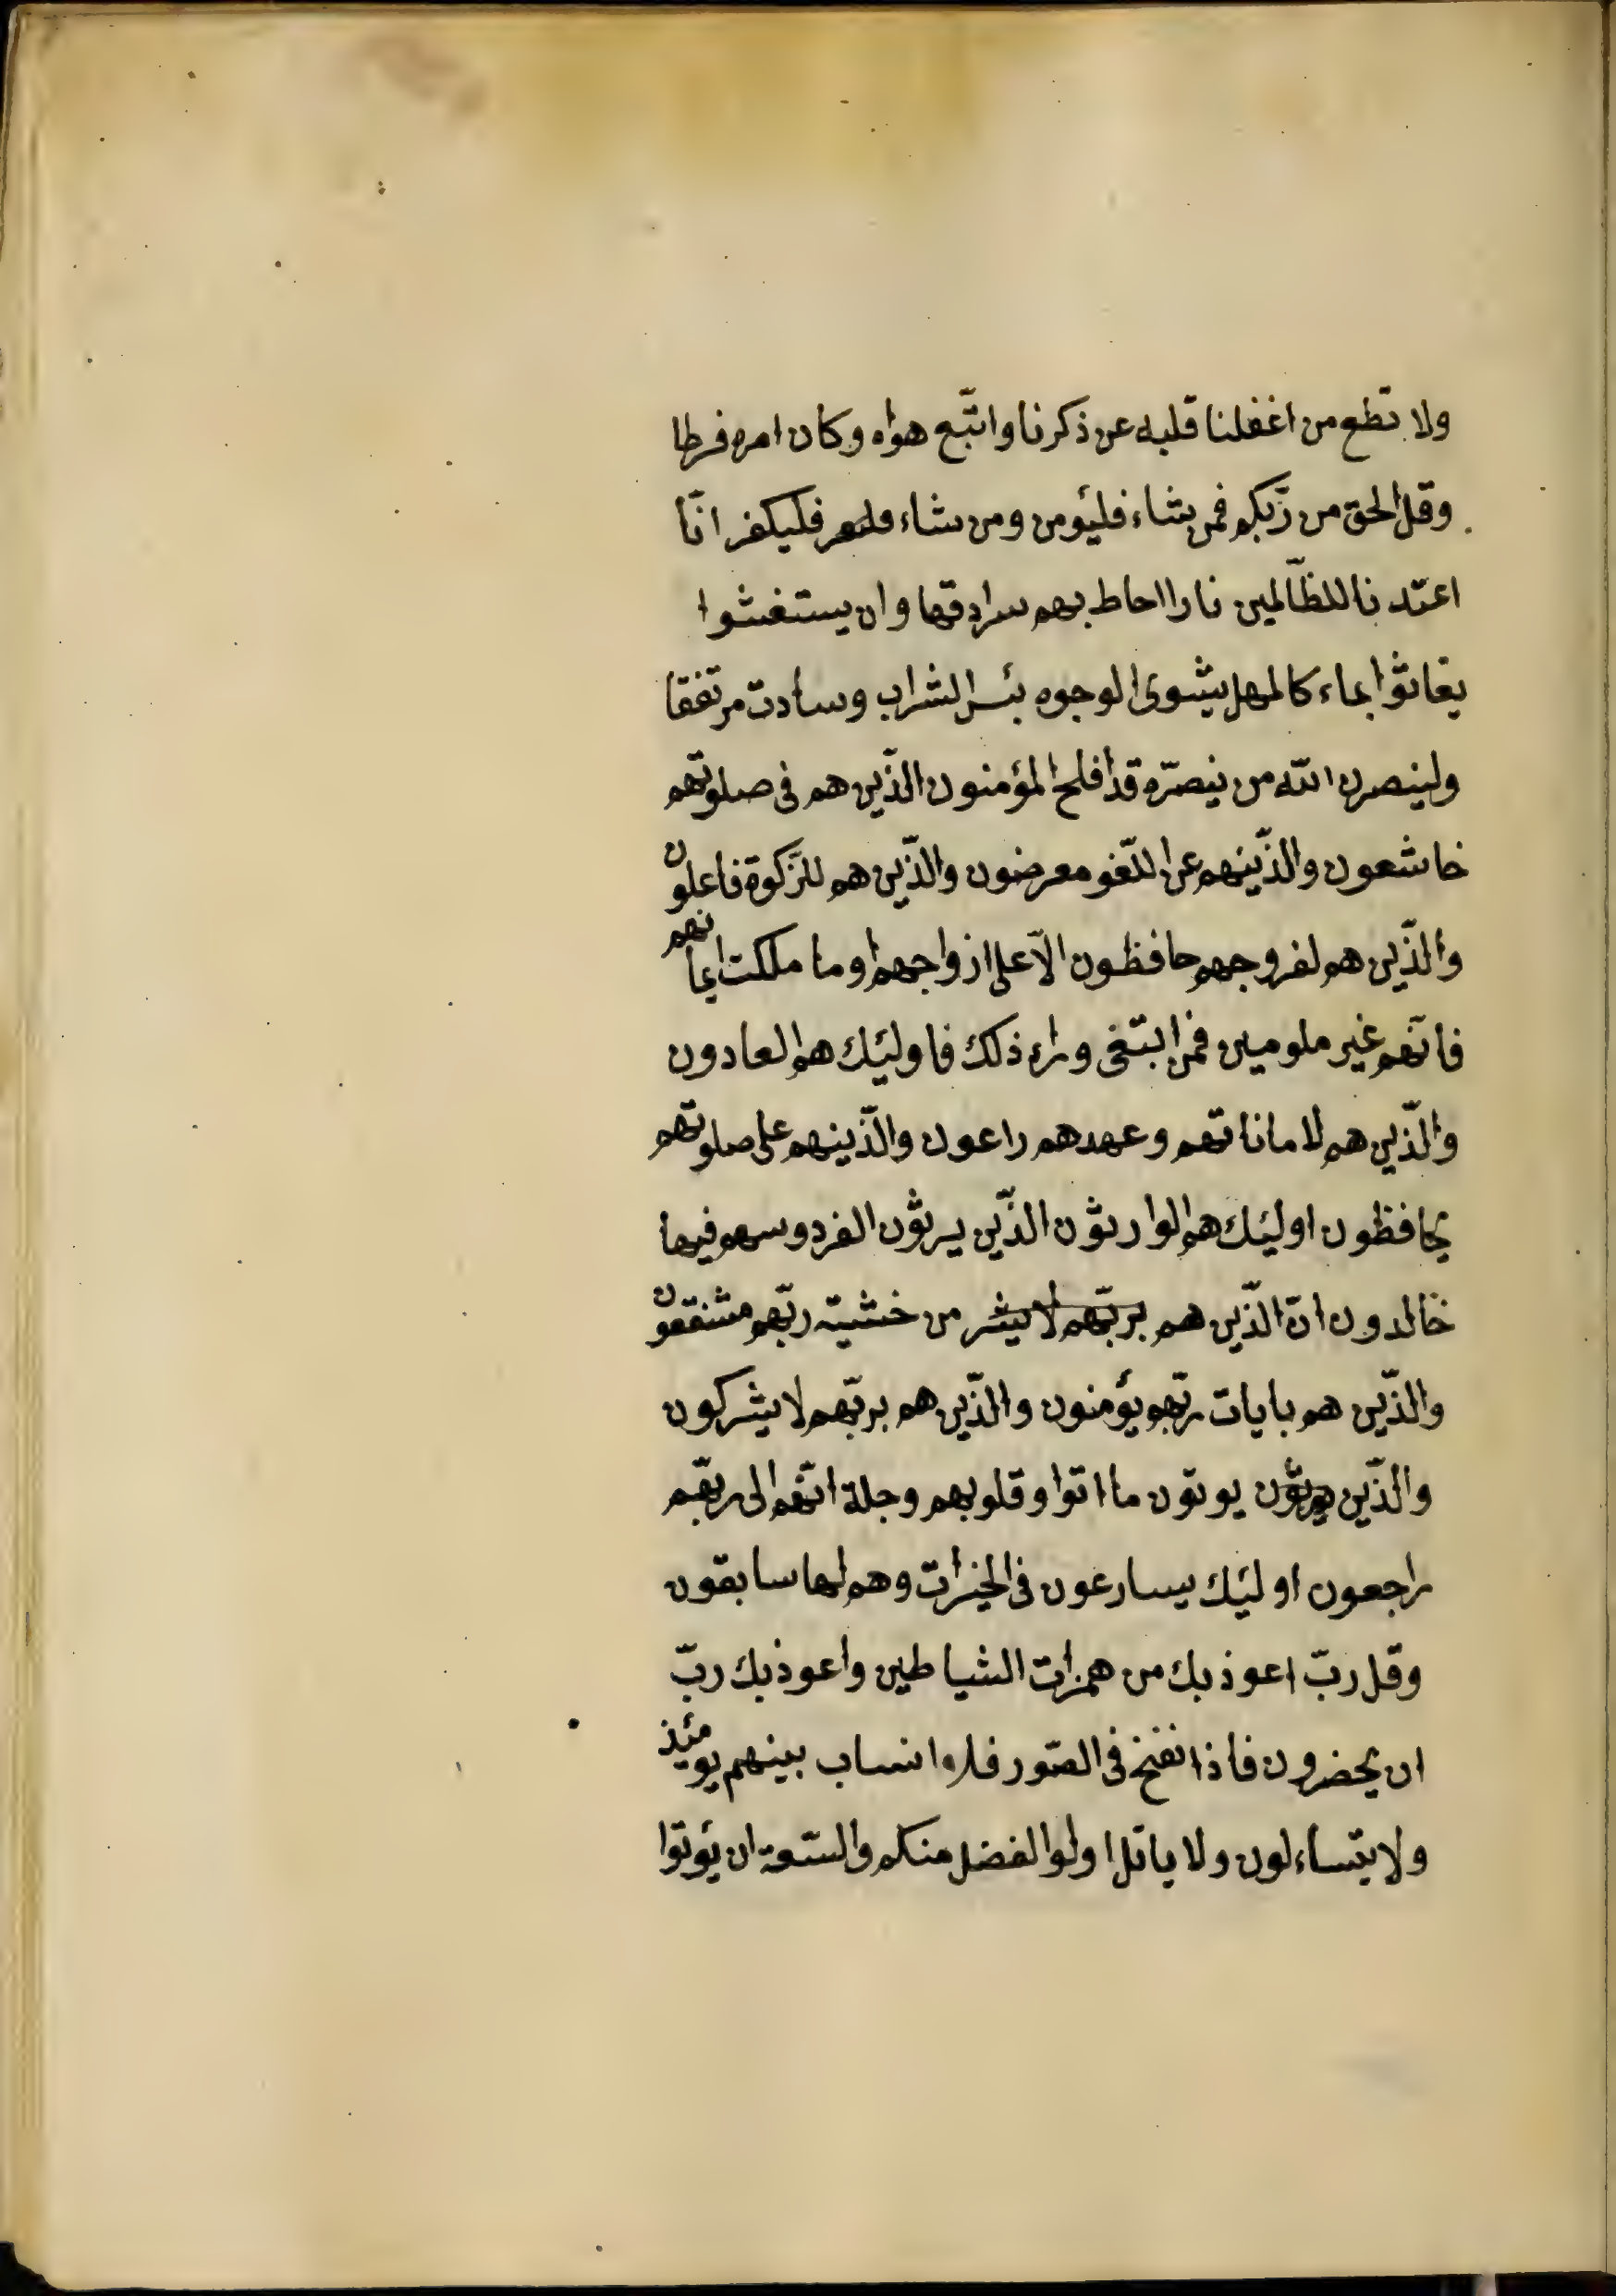 ولا تطع من اغفلنا قلبه عن ذكرنا واتّبع هواه وكان امره فرطا
وقل الحق من رّبكم فمن شاء فليؤمن ومن شاء فليكفر انّا
اعتدنا للظّالمين نارا احاط بهم سرادقها وان يستغيثوا
يغاثوا بماء كالمهل يشوى الوجوه بئس الشراب وساءت مرتفقا
ولينصرن الله من ينصرّه قد افلح المؤمنون الذّين هم فى صلوتهم
خاشعون والذّينهم عن اللّغو معرضون والذّين هم للزّكوة فاعلون
والذّين هم لفروجهم حافظون الاّ على ازواجهم او ما ملكت ايمانهم
فانّهم غير ملومين فمن ابتغى وراء ذلك فاولئك هم العادون
والذّين هم لاماناتهم وعهدهم راعون والذّينهم على صلوتهم
يحافظون اولئك هم الوارثون الذّين يرثون الفردوسهم فيها
خالدون انّ الذّين هم بربّهم لا يشر من خشية ربّهم مشفقون
والذّين هم بايات ربّهم يؤمنون والذّين هم بربّهم لا يشركون
والذّين يرثون يوتون ما اتوا وقلوبهم وجلة انّهم الى ربّهم
راجعون اولئك يسارعون فى الخيرات وهم لها سابقون
وقل ربّ اعوذ بك من همزات الشياطين واعوذ بك ربّ
ان يحضرون فاذا نفخ فى الصّور فلا انساب بينهم يومئذ
ولا يتساءلون ولا ياتل اولوا الفضل منكم والسّعة ان يؤتوا